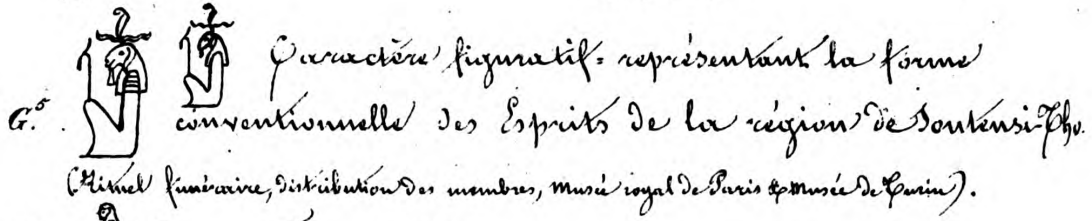 Caractère figuratif = représentant la forme
G.5. conventionnelle des Esprits de la région de Soutensi-Tho.
(Rituel funéraire, distribution des membres, musée royal de Paris & musée de Turin).